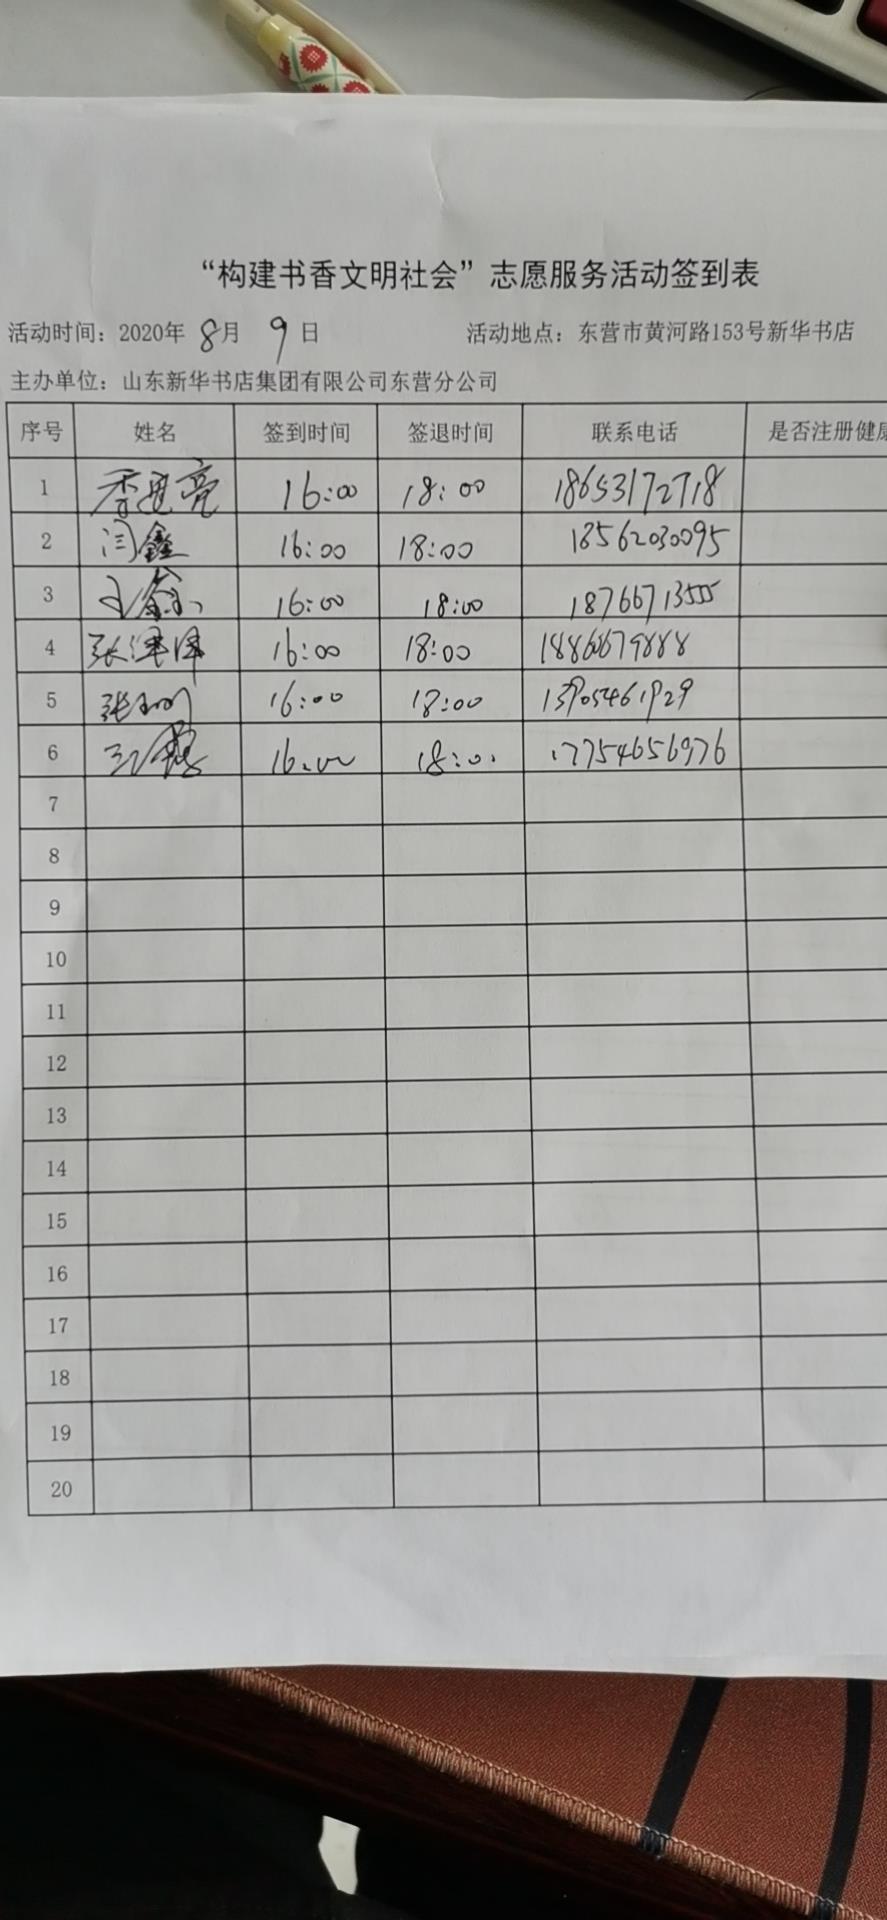 “构建书香文明社会”志愿服务活动签到表
活动时间：2020年 8月 9日 活动地点：东营市黄河路153号新华书店
主办单位：山东新华书店集团有限公司东营分公司
序号 姓名 签到时间 签退时间 联系电话 是否注册健康
1 16:00 18:00 18653172718
2 闫鑫 16:00 18:00 18562030095
3 16:00 18:00 18766713555
4 16:00 18:00
5 16:00 18:00 13905461929
6 16:00 18:00 17754656976
7
8
9
10
11
12
13
14
15
16
17
18
19
20